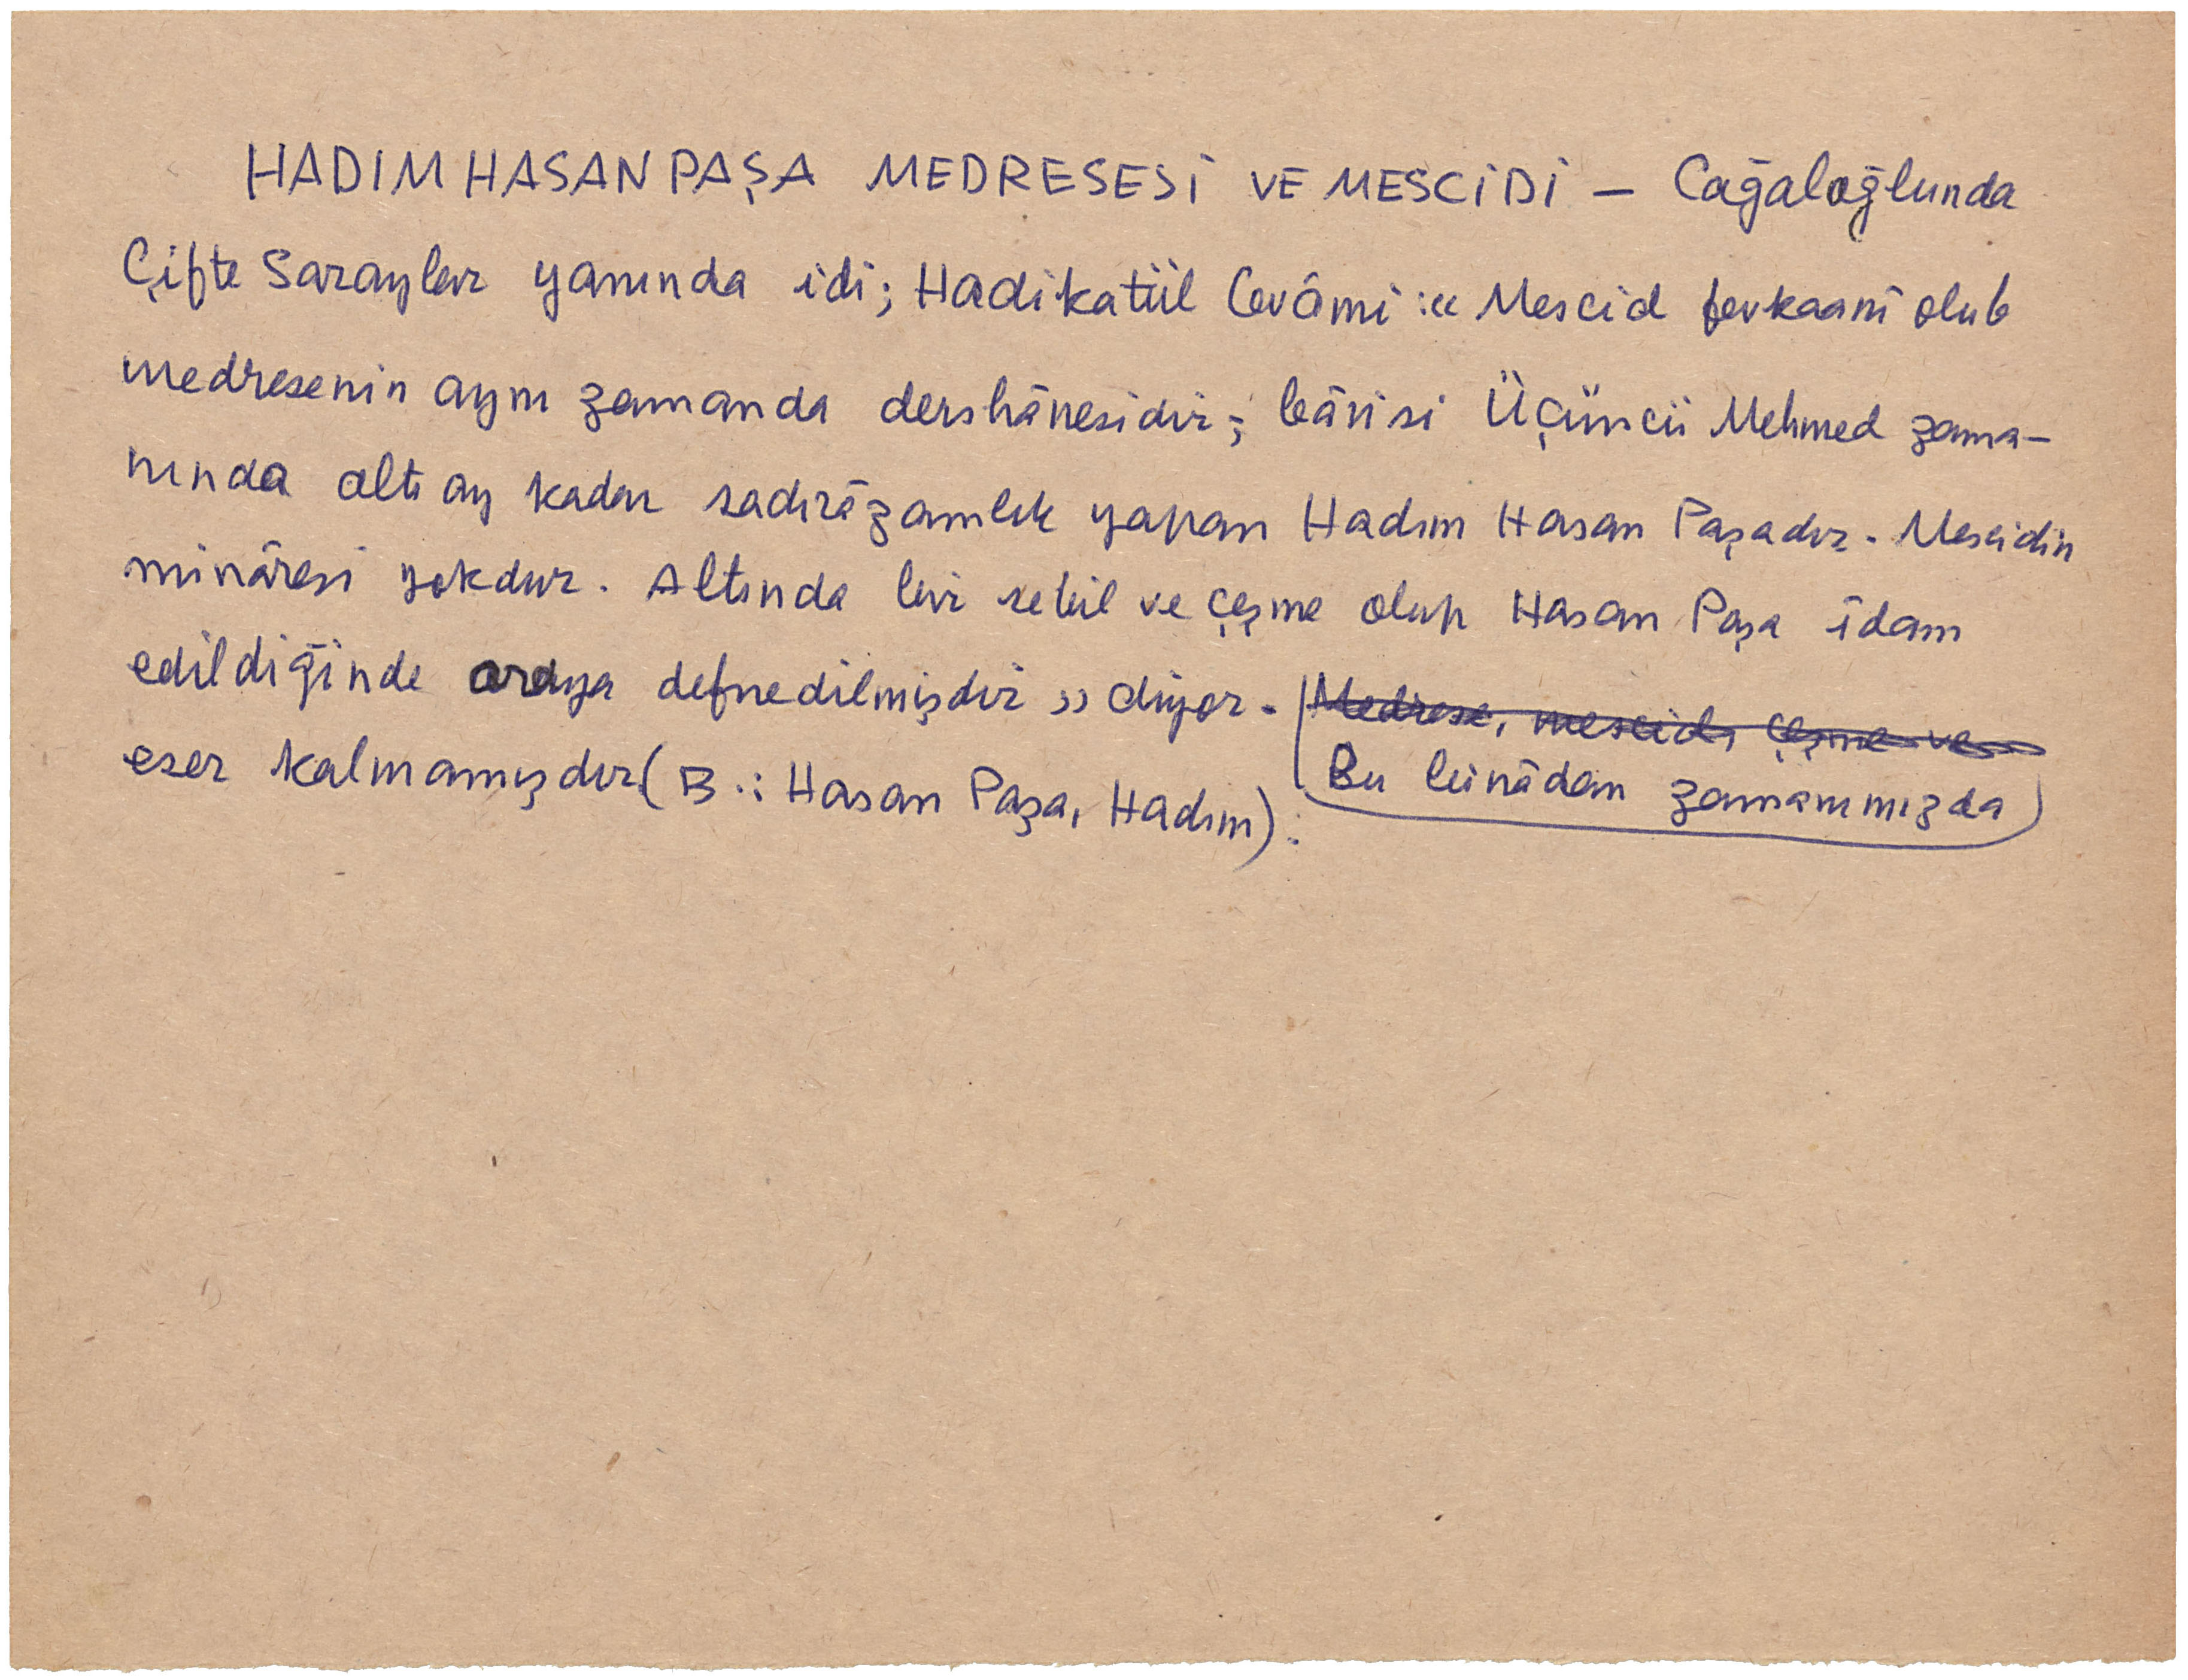 HADIM HASAN PAŞA MEDRESESİ VE MESCİDİ — Cağaloğlunda
Çifte Saraylar yanında idi; Hadikatül Cevâmi :« Mescid fevkaanî olub
medresenin aynı zamanda dershânesidir; bânisi Üçüncü Mehmed zama-
nında altı ay kadar sadırâzamlık yapan Hadım Hasan Paşadır. Mescidin
minâresi yokdur. Altında bir sebil ve çeşme olup Hasan Paşa îdam
edildiğinde oraya defnedilmişdir » diyor. Medrese, mescid, çeşme ve
Bu binâdan zamanımızda
eser kalmamışdır (B.: Hasan Paşa, Hadım).